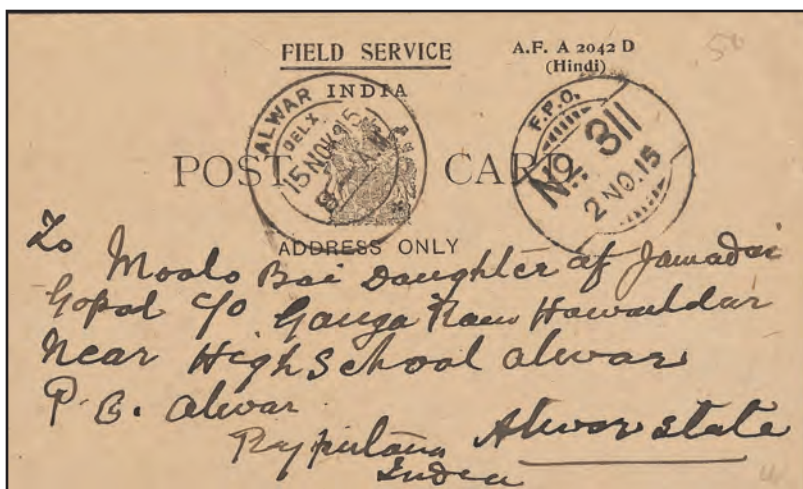 FIELD SERVICE
A.F. A 2042 D
(Hindi)
50
INDIA
ALWAR
DELY.
15 NOV 15
F.P.O.
No. 311
2 NO. 15
POST CARD
ADDRESS ONLY
To Moolo Bai Daughter of Jamadar
Gopal c/o Ganga Ram Hawaldar
Near High School Alwar
P.O. Alwar
Rajputana Alwar State
India